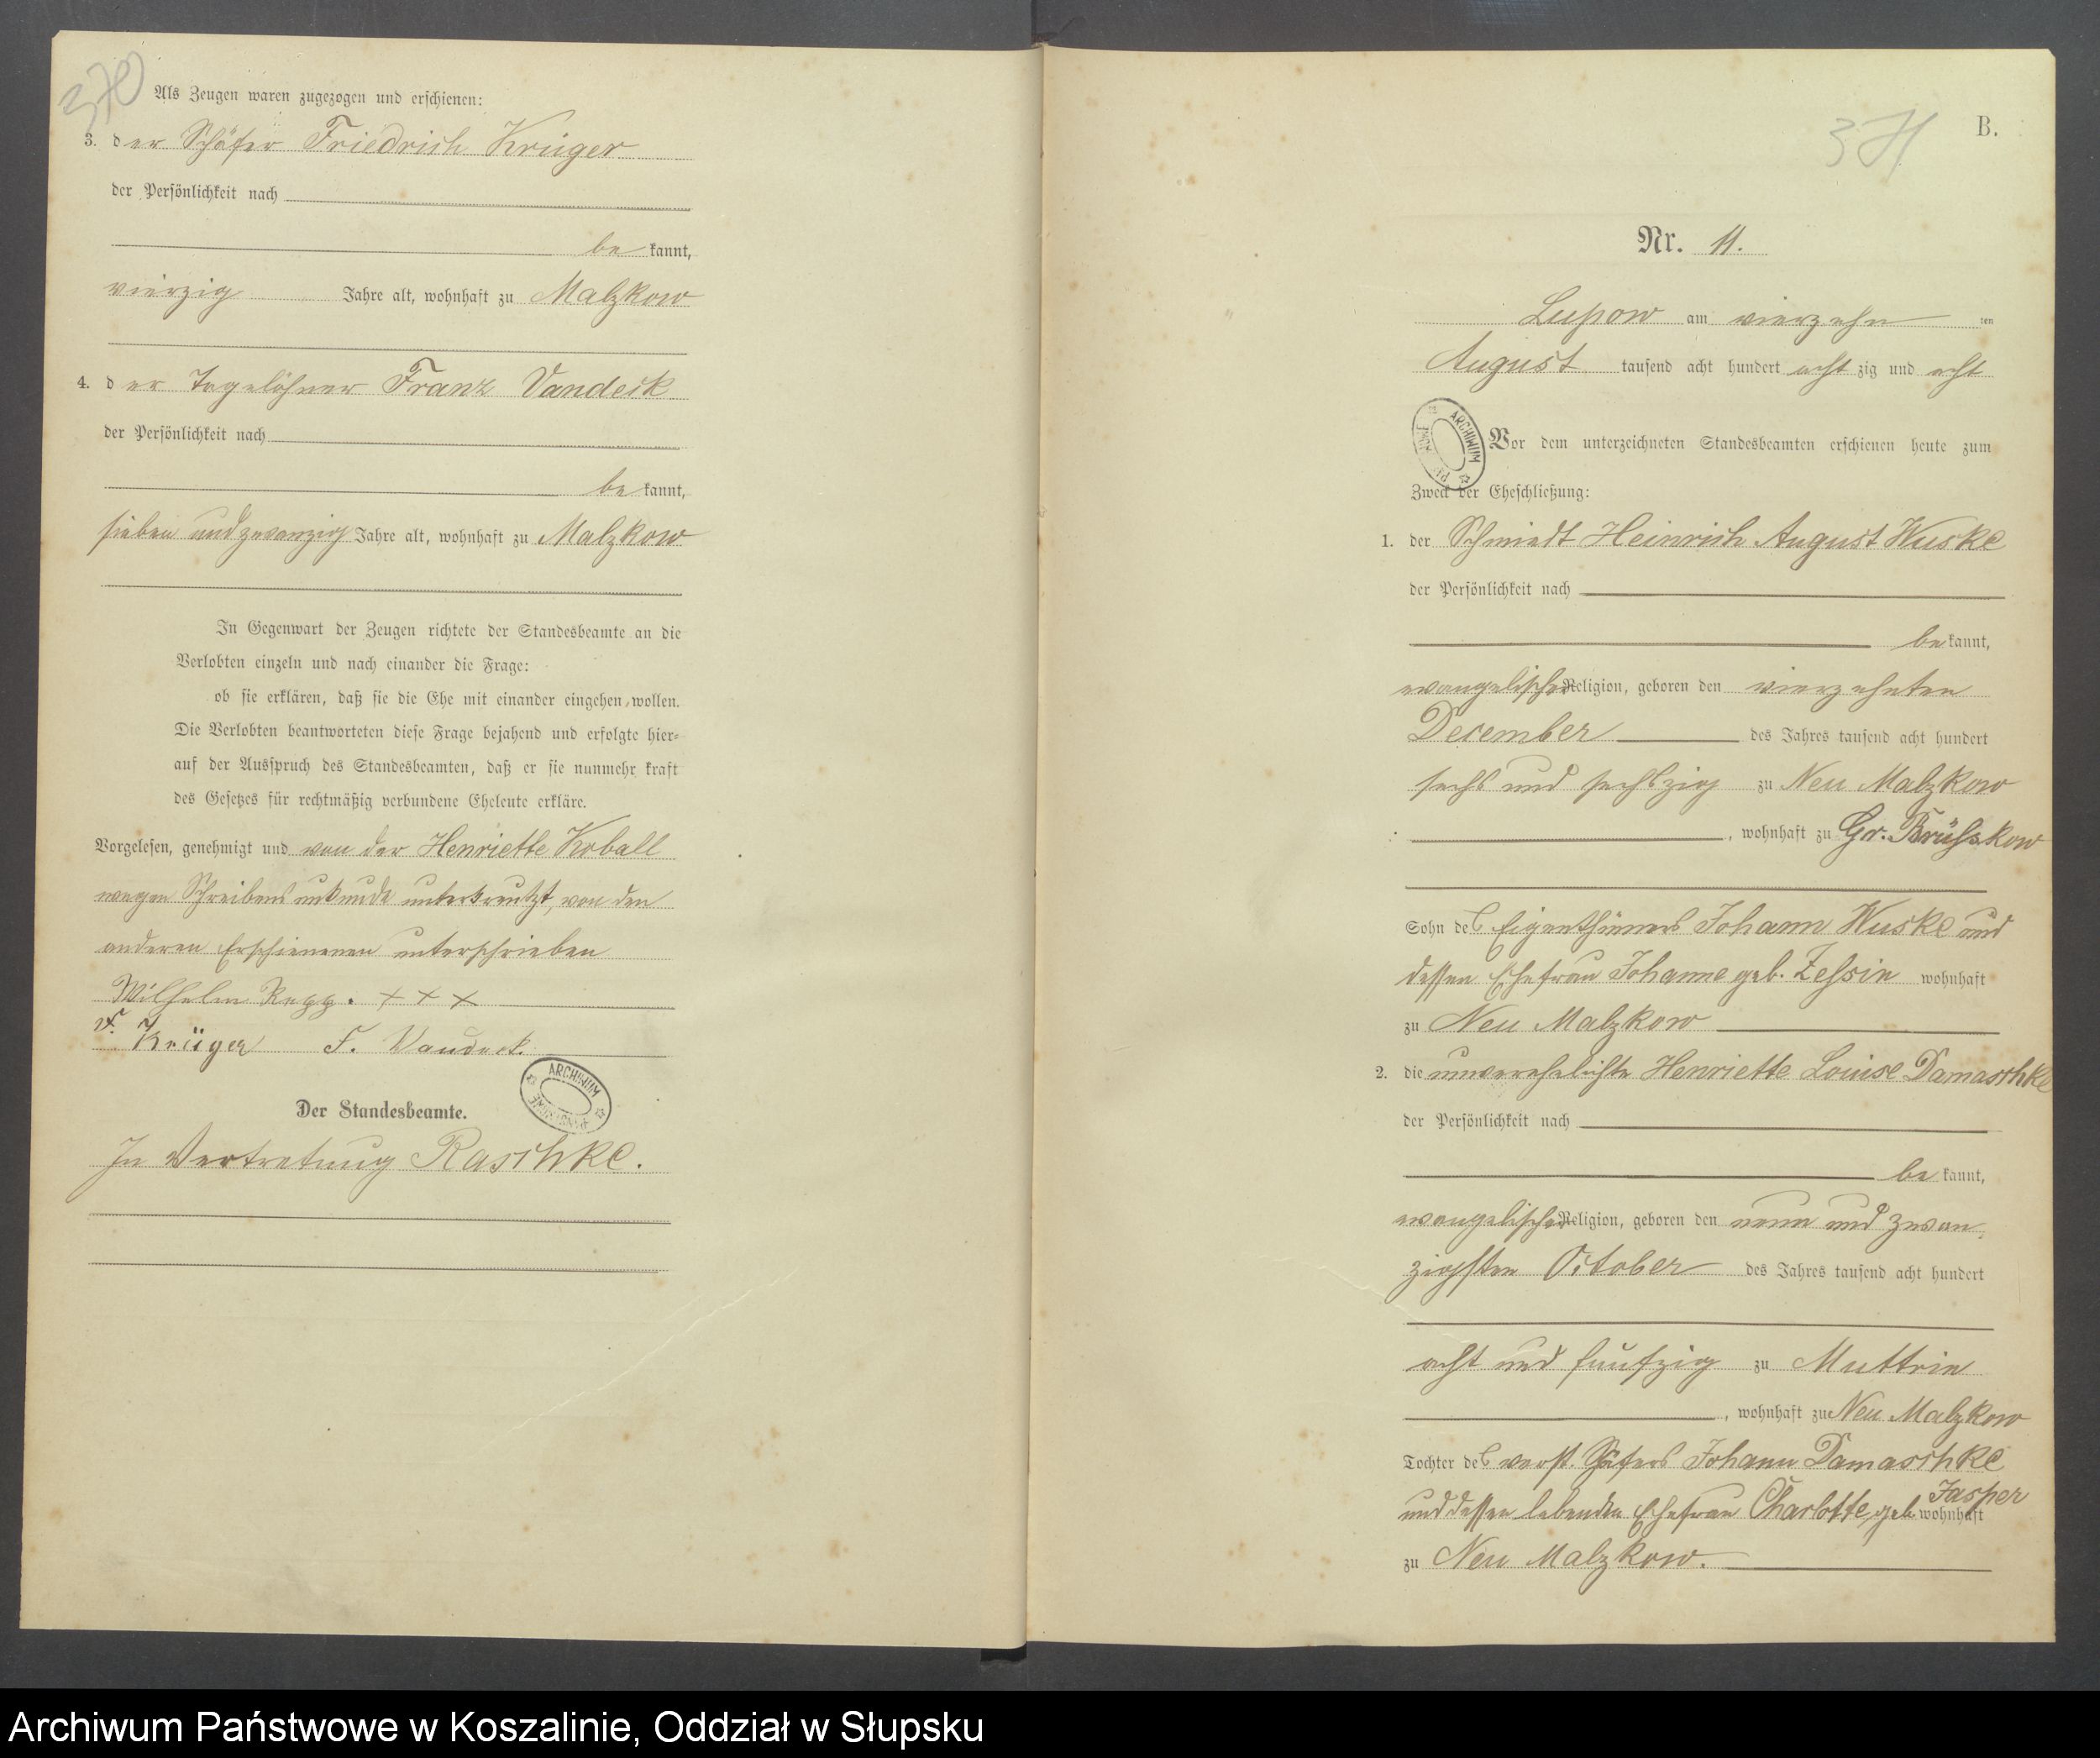 370
Als Zeugen waren zugezogen und erschienen:
3. der Schäfer Friedrich Krüger
der Persönlichkeit nach
be kannt,
vierzig Jahre alt, wohnhaft zu Malzkow
4. der Tagelöhner Franz Vandeck
der Persönlichkeit nach
be kannt,
sieben und zwanzig Jahre alt, wohnhaft zu Malzkow
In Gegenwart der Zeugen richtete der Standesbeamte an die
Verlobten einzeln und nach einander die Frage:
ob sie erklären, daß sie die Ehe mit einander eingehen wollen.
Die Verlobten beantworteten diese Frage bejahend und erfolgte hier-
auf der Ausspruch des Standesbeamten, daß er sie nunmehr kraft
des Gesetzes für rechtmäßig verbundene Eheleute erkläre.
Vorgelesen, genehmigt und von der Henriette Koball
wegen Schreibensunkunde unterkreutzt, von den
anderen Erschienenen unterschrieben
Wilhelm Kegg. + + +
F. Krüger F. Vandeck.
ARCHIWUM
Der Standesbeamte.
In Vertretung Raschke.
371
B.
Nr. 11.
Lupow am vierzehn ten
August tausend acht hundert acht zig und acht
ARCHIWUM
Vor dem unterzeichneten Standesbeamten erschienen heute zum
Zweck der Eheschließung:
1. der Schmiedt Heinrich August Wuske
der Persönlichkeit nach
be kannt,
evangelischer Religion, geboren den vierzehnten
December des Jahres tausend acht hundert
sechs und sechszig zu Neu Malzkow
, wohnhaft zu Gr. Brüskow
Sohn des Eigenthümers Johann Wuske und
dessen Ehefrau Johanne geb. Zessin wohnhaft
zu Neu Malzkow
2. die unverehelichte Henriette Louise Damaschke
der Persönlichkeit nach
be kannt,
evangelischer Religion, geboren den neun und zwan-
zigsten October des Jahres tausend acht hundert
acht und fünfzig zu Muttrin
, wohnhaft zu Neu Malzkow
Tochter des verst. Schäfers Johann Damaschke
und dessen lebenden Ehefrau Charlotte, geb. Jasper wohnhaft
zu Neu Malzkow.
Archiwum Państwowe w Koszalinie, Oddział w Słupsku